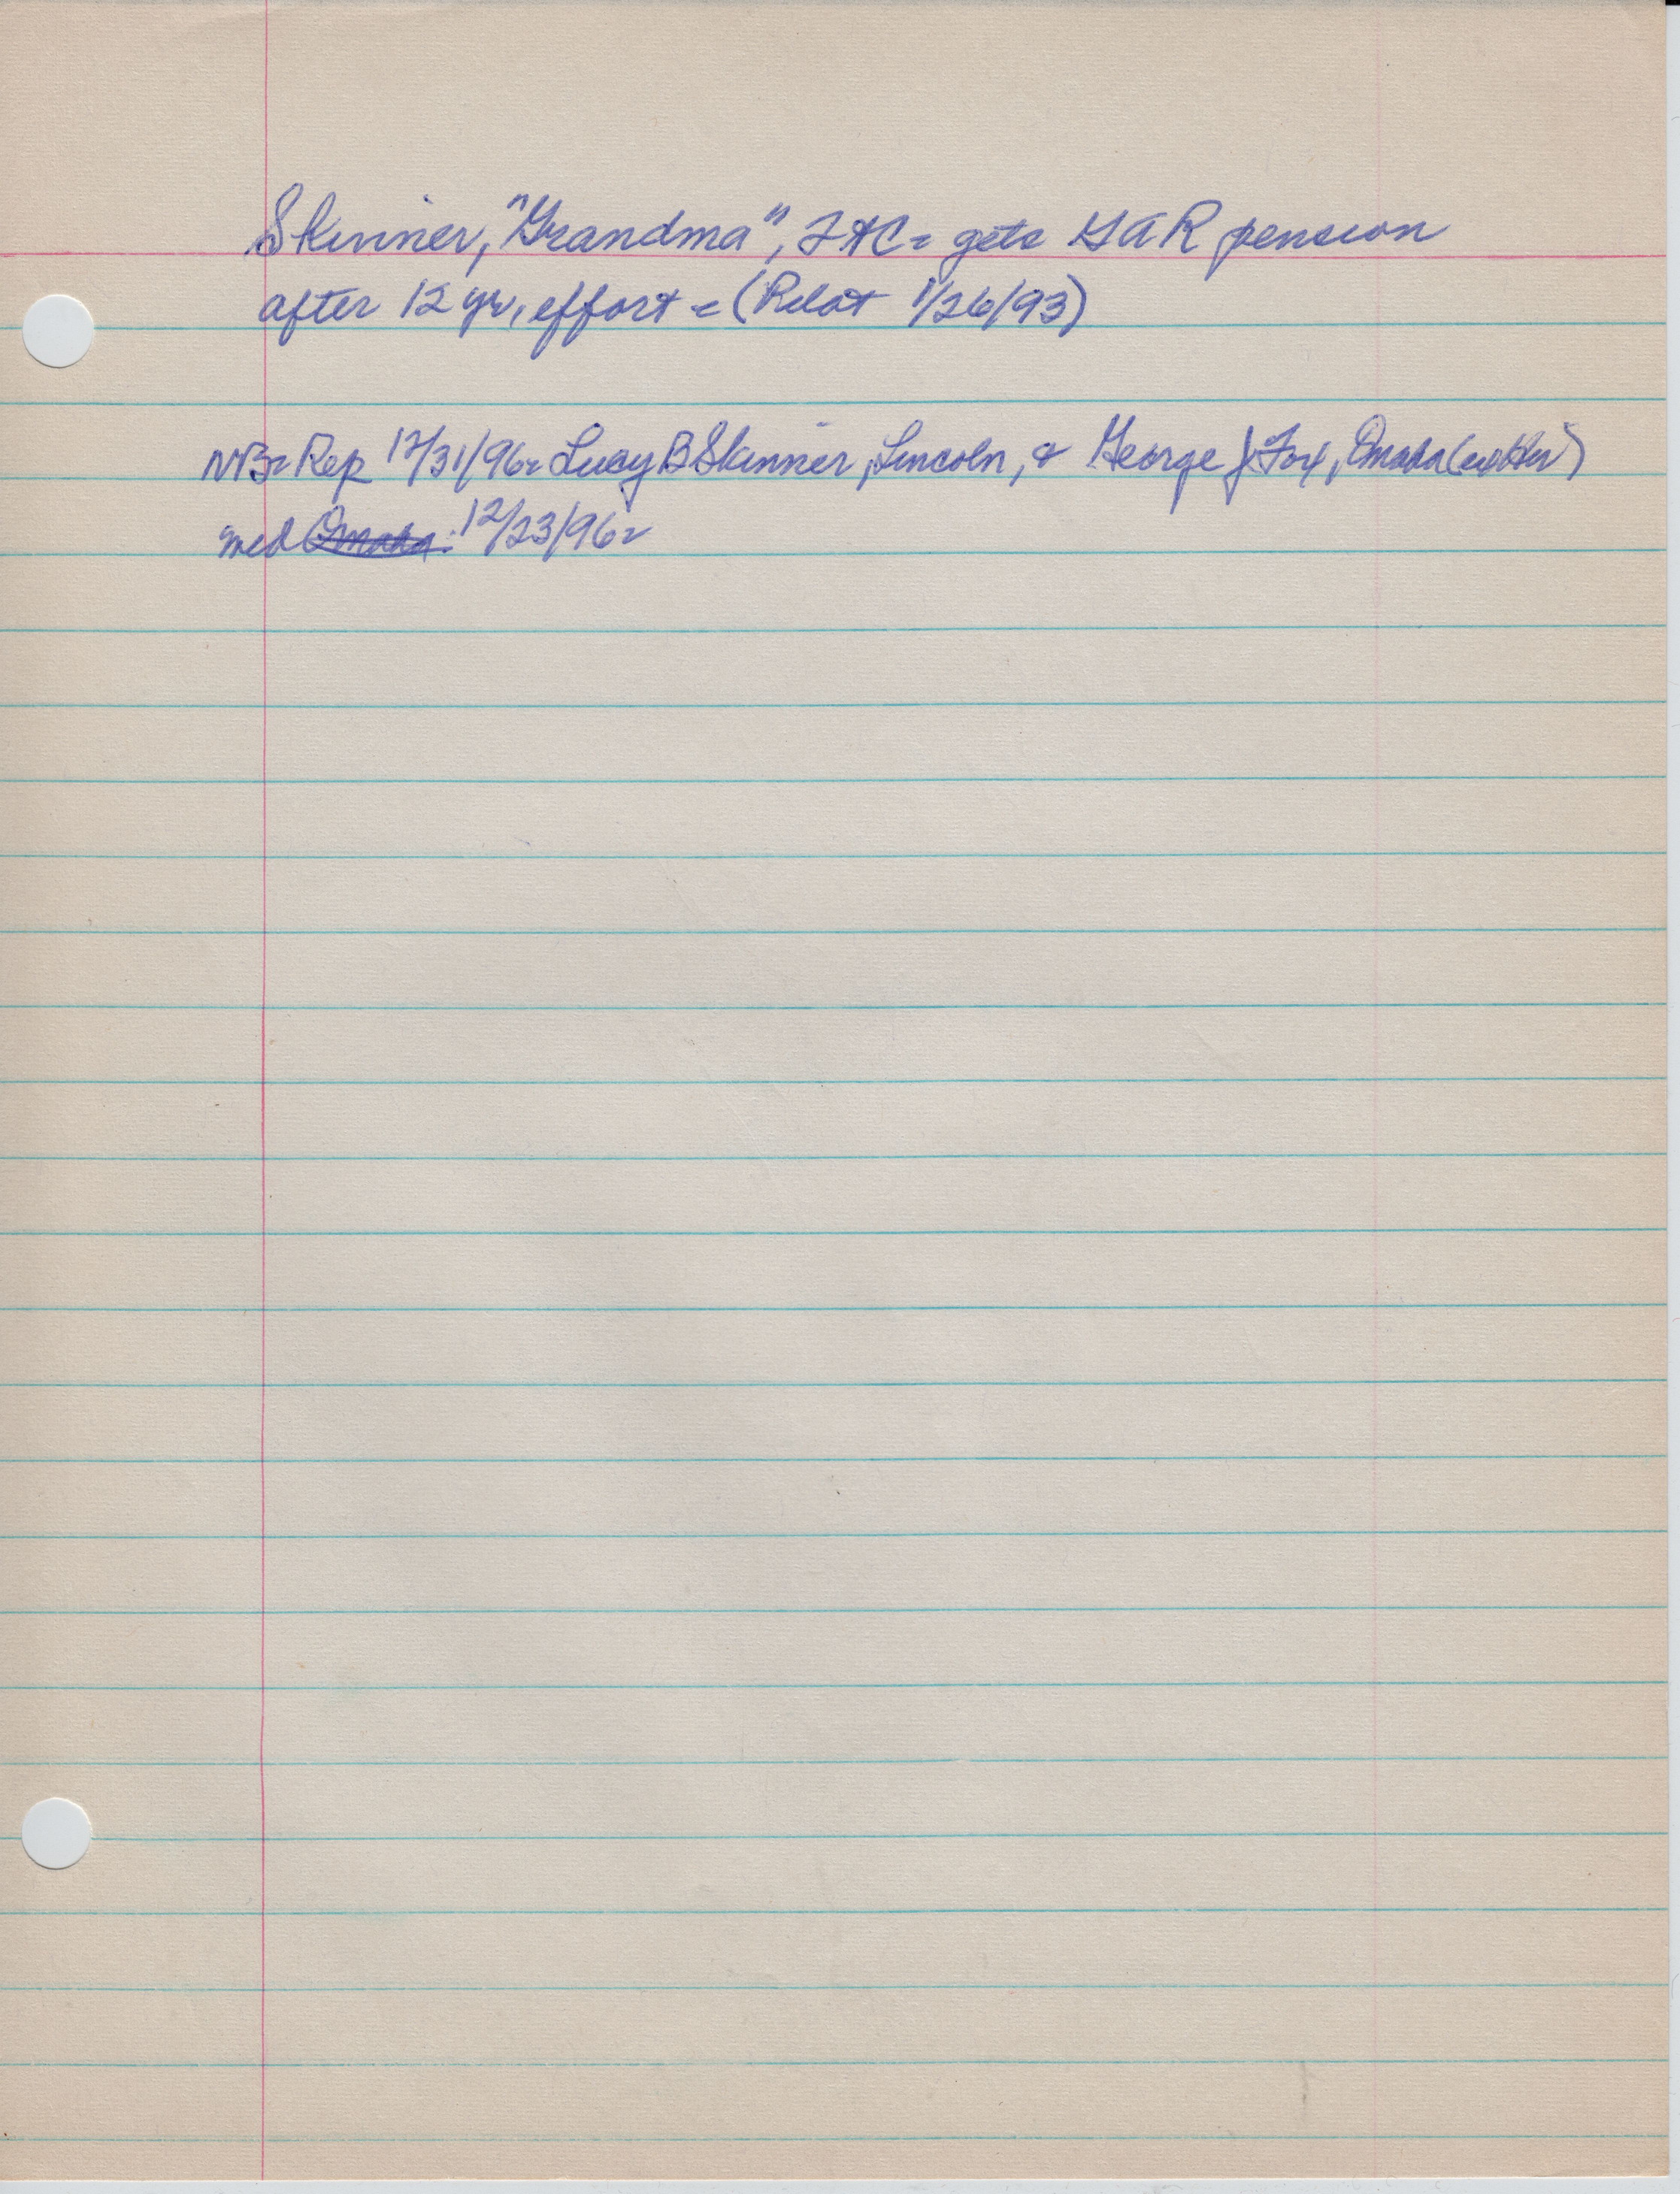 Skinner, "Grandma", gets GAR pension
after 12 yr, effort = (Relat 1/26/93)
NB= Rep 12/31/96= Lucy B Skinner, Lincoln, & George J Fox, Omaha
med Omaha: 12/23/96=